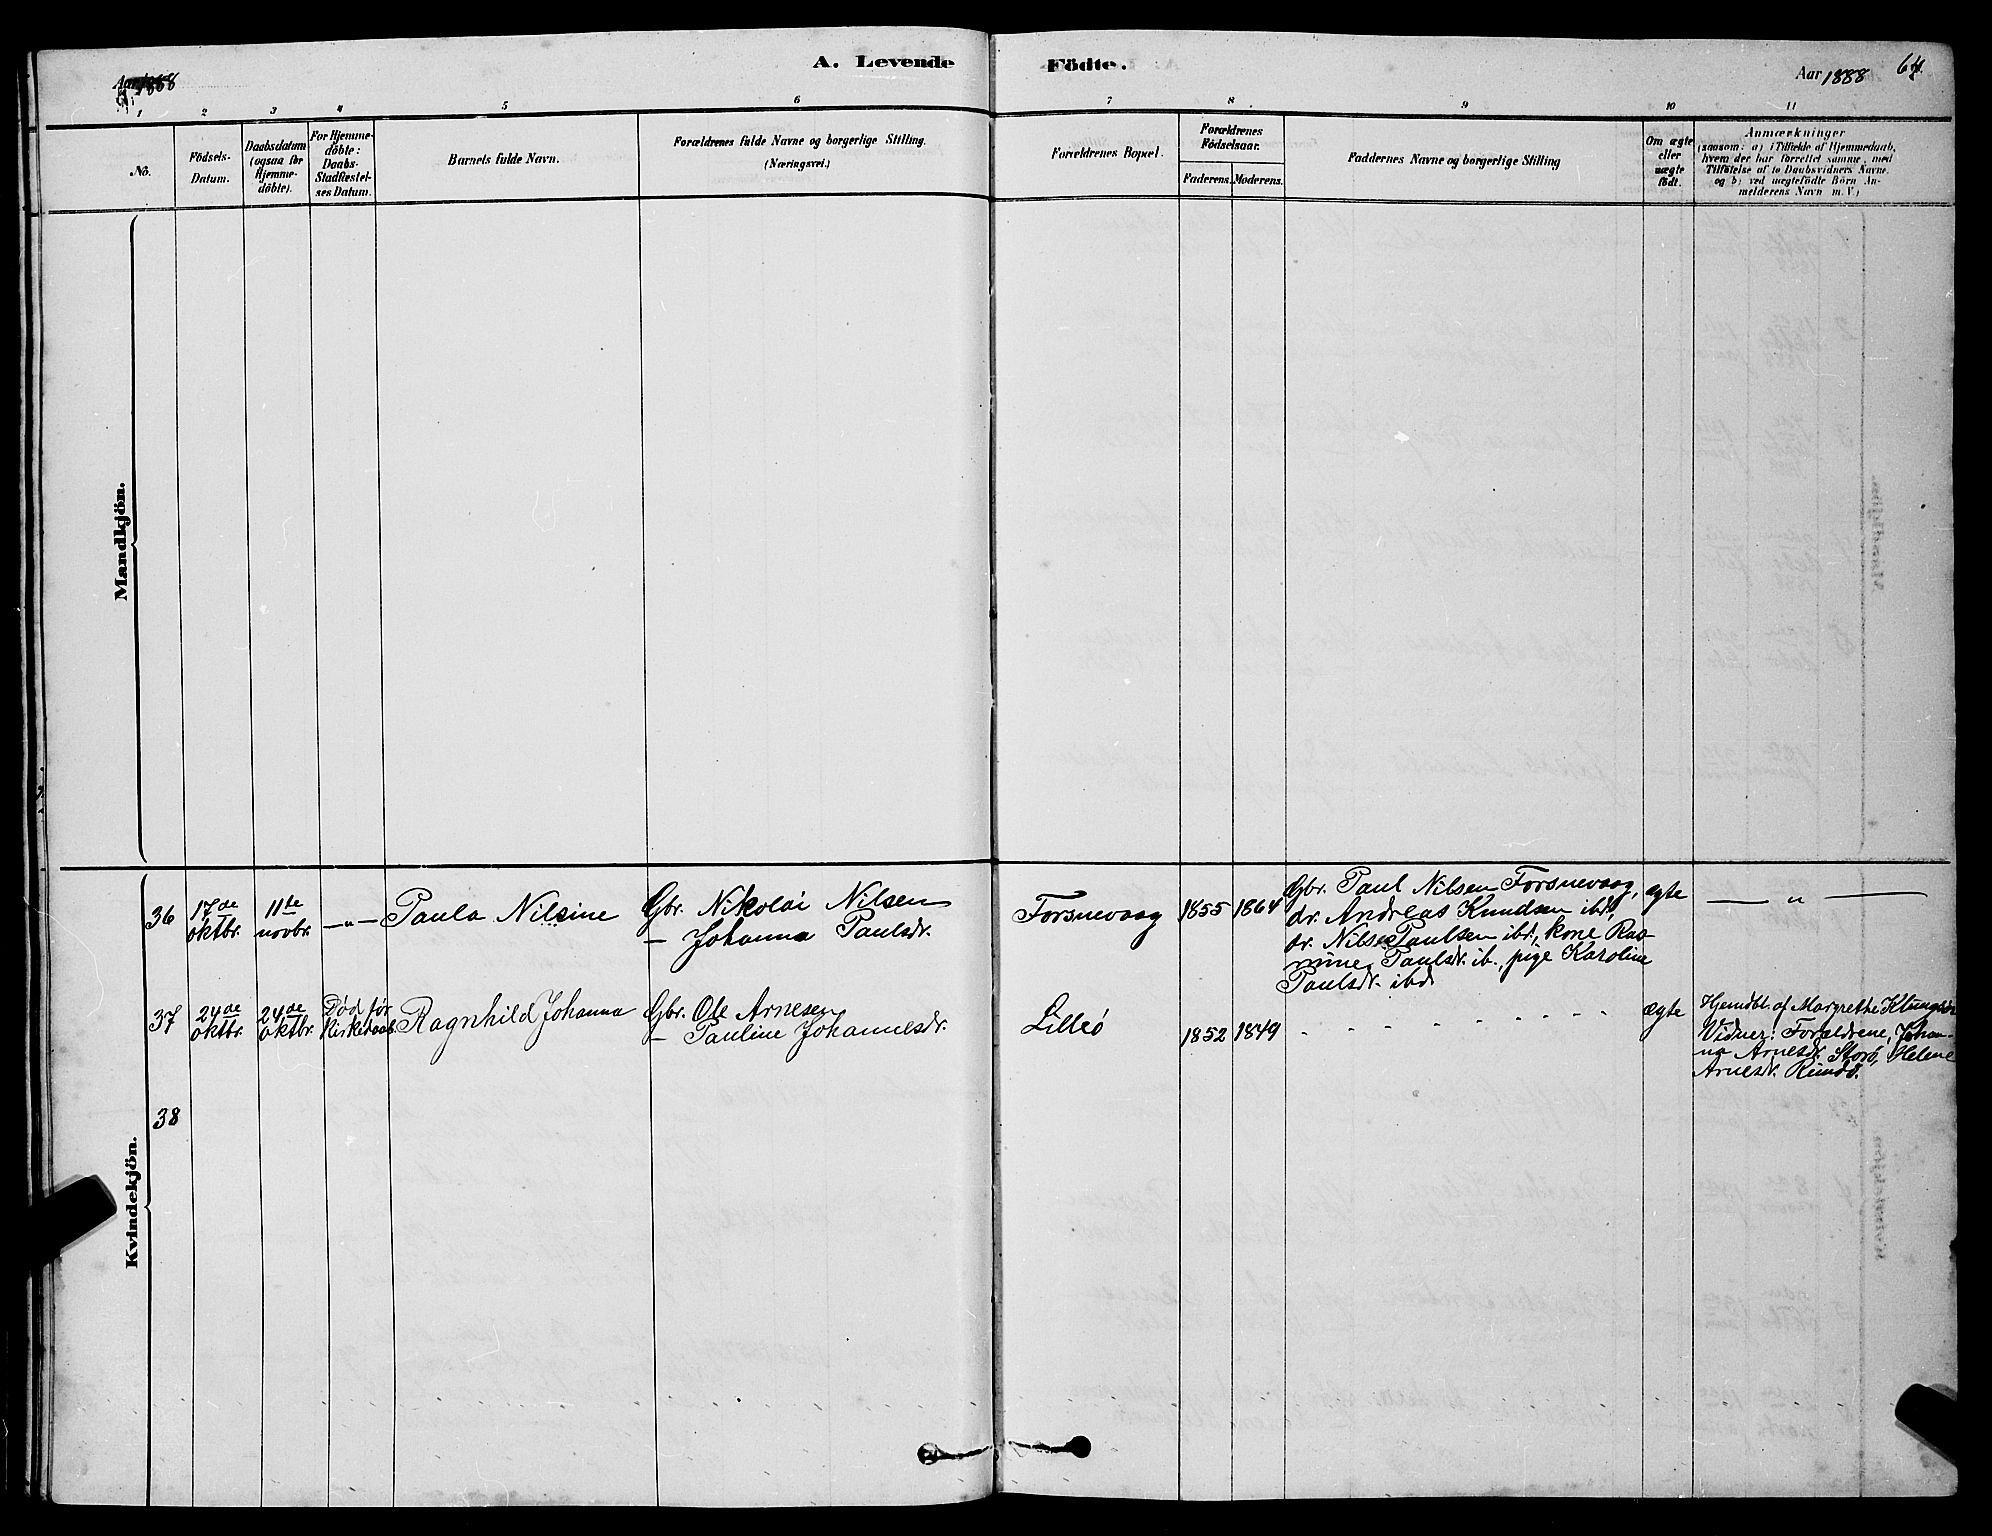 Aar 1888
A. Levende Födte.
Aar 1888 64.
1 2 3 4 5 6 7 8 9 10 11
No.
Födsels-
Datum.
Daabsdatum
(ogsaa for
Hjemme-
döbte).
For Hjemme-
döbte:
Daabs-
Stadfæstel-
ses Datum.
Barnets fulde Navn.
Forældrenes fulde Navne og borgerlige Stilling.
(Næringsvei.)
Forældrenes Bopæl.
Forældrenes
Födselsaar.
Faderens. Moderens.
Faddernes Navne og borgerlige Stilling
Om ægte
eller
uægte
födt.
Anmærkninger
(saasom: a) i Tilfælde af Hjemmedaab,
hvem der har forrettet samme, med
Tilföielse af to Daabsvidners Navne,
og b) ved uægtefödte Börn An-
melderens Navn m. V.)
Mandkjön.
Kvindekjön.
36
17de
oktbr.
11te
novbr.
— " —
Paula Nilsine
Gbr. Nikolai Nilsen
— Johanna Paulsdr.
Forsnevaag
1855 1864
Gbr. Paul Nilsen Forsnevaag,
do. Andreas Knudsen ibd.,
do. Nils Paulsen ibd., kone Ras-
mine Paulsdr. ib., pige Karoline
Paulsdr. ibd.
ægte
— " —
37
24de
oktbr.
24de
oktbr.
Död för
Kirkedaab.
Ragnhild Johanna
Gbr. Ole Arnesen
— Pauline Johannesdr.
Lilleö
1852 1849
- - - - - - - - -
ægte
Hjemdbt. af Margrethe
Vidner: Forældrene, Johan-
na Arnesdr. Storö, Helene
Arnesdr.
38